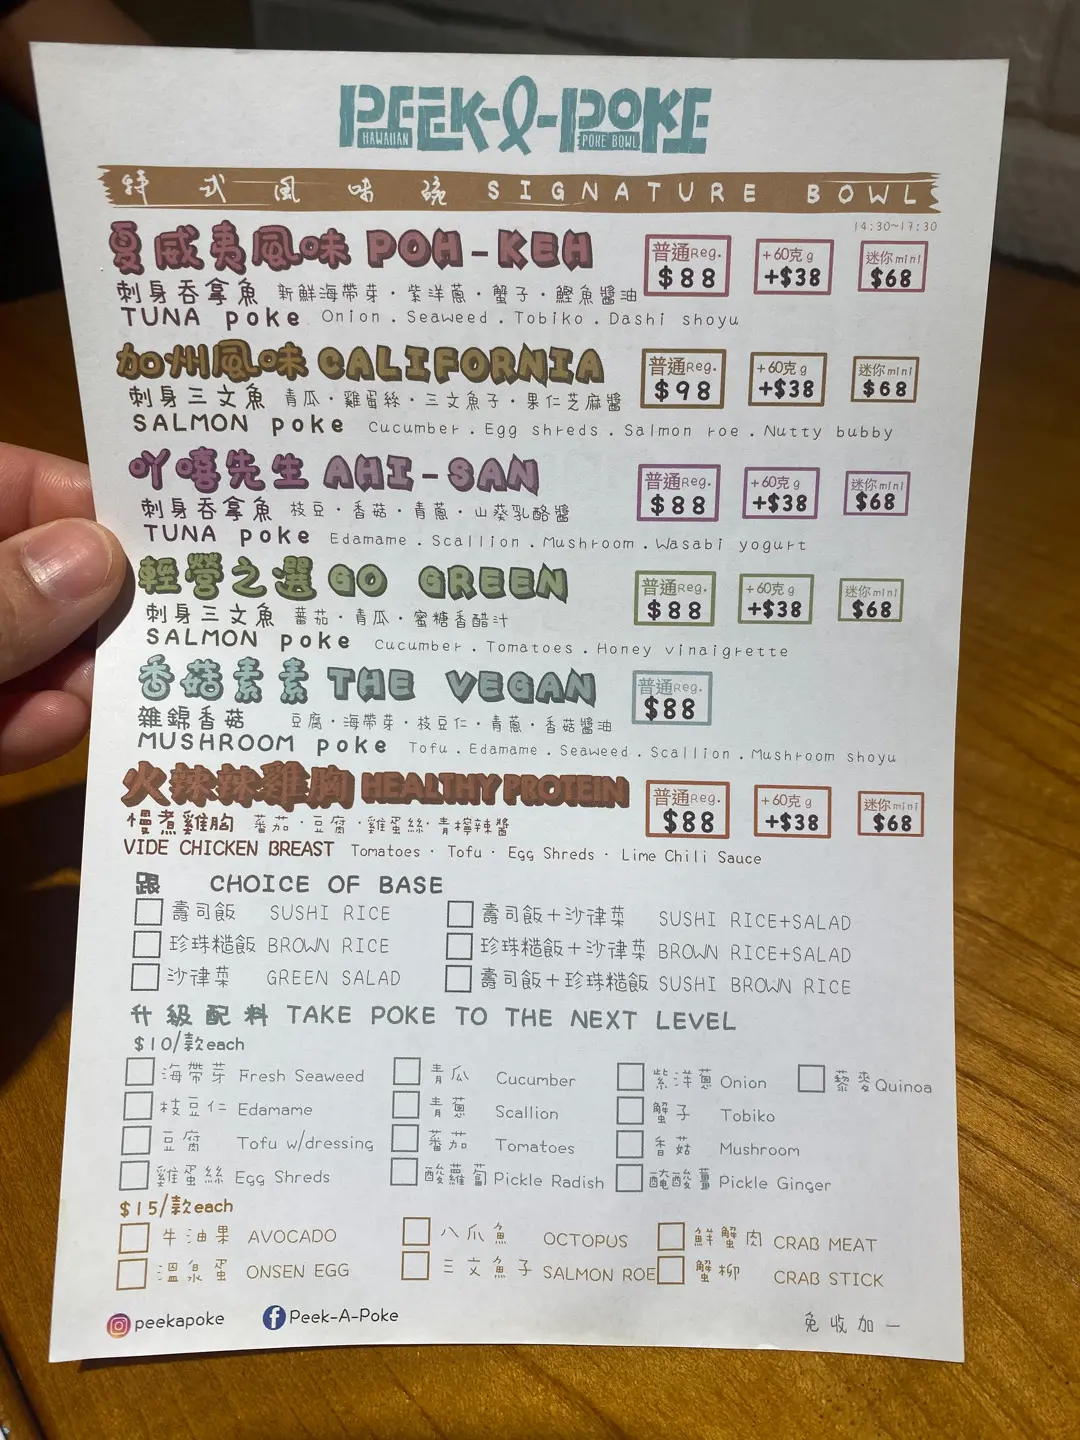 PEEK-A-POKE
HAWAIIAN POKE BOWL
特式風味碗 SIGNATURE BOWL
14:30~17:30
夏威夷風味 POH-KEH 普通Reg. $88 +60克g +$38 迷你mini $68
刺身吞拿魚 新鮮海帶芽·紫洋蔥·蟹子·鰹魚醬油
TUNA poke Onion . Seaweed . Tobiko . Dashi shoyu
加州風味 CALIFORNIA 普通Reg. $98 +60克g +$38 迷你mini $68
刺身三文魚 青瓜·雞蛋絲·三文魚子·果仁芝麻醬
SALMON poke Cucumber . Egg shreds . Salmon roe . Nutty bubby
吖嘻先生 AHI-SAN 普通Reg. $88 +60克g +$38 迷你mini $68
刺身吞拿魚 枝豆·香菇·青蔥·山葵乳酪醬
TUNA poke Edamame . Scallion . Mushroom . Wasabi yogurt
輕營之選 GO GREEN 普通Reg. $88 +60克g +$38 迷你mini $68
刺身三文魚 蕃茄·青瓜·蜜糖香醋汁
SALMON poke Cucumber . Tomatoes . Honey vinaigrette
香菇素素 THE VEGAN 普通Reg. $88
雜錦香菇 豆腐·海帶芽·枝豆仁·青蔥·香菇醬油
MUSHROOM poke Tofu . Edamame . Seaweed . Scallion . Mushroom shoyu
火辣辣雞胸 HEALTHY PROTEIN 普通Reg. $88 +60克g +$38 迷你mini $68
慢煮雞胸 蕃茄·豆腐·雞蛋絲·青檸辣醬
VIDE CHICKEN BREAST Tomatoes · Tofu · Egg Shreds · Lime Chili Sauce
跟 CHOICE OF BASE
壽司飯 SUSHI RICE 壽司飯+沙律菜 SUSHI RICE+SALAD
珍珠糙飯 BROWN RICE 珍珠糙飯+沙律菜 BROWN RICE+SALAD
沙律菜 GREEN SALAD 壽司飯+珍珠糙飯 SUSHI BROWN RICE
升級配料 TAKE POKE TO THE NEXT LEVEL
$10/款each
海帶芽 Fresh Seaweed 青瓜 Cucumber 紫洋蔥 Onion 藜麥 Quinoa
枝豆仁 Edamame 青蔥 Scallion 蟹子 Tobiko
豆腐 Tofu w/dressing 蕃茄 Tomatoes 香菇 Mushroom
雞蛋絲 Egg Shreds 酸蘿蔔 Pickle Radish 醃酸薑 Pickle Ginger
$15/款each
牛油果 AVOCADO 八爪魚 OCTOPUS 鮮蟹肉 CRAB MEAT
溫泉蛋 ONSEN EGG 三文魚子 SALMON ROE 蟹柳 CRAB STICK
peekapoke Peek-A-Poke 免收加一